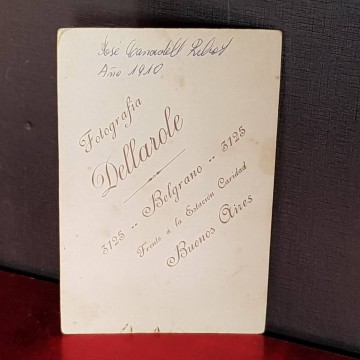 José
Año 1910
Fotografía
Dellarole
3125 -- Belgrano -- 3125
Frente á la Estación Caridad
Buenos Aires